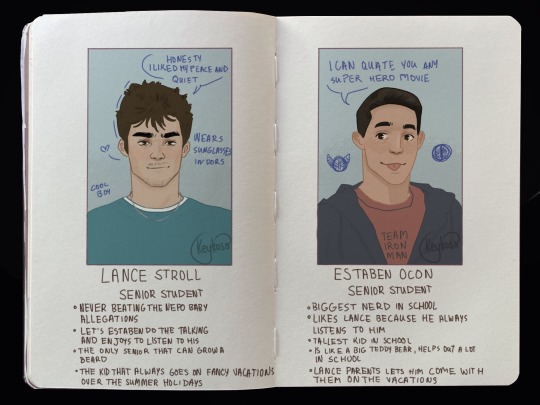 HONESTY
I LIKED MY PEACE AND
QUIET
WEARS
SUNGLASSES
INDORS
COOL
BOY
Keytoso
LANCE STROLL
SENIOR STUDENT
• NEVER BEATING THE NEPO BABY
ALLEGATIONS
• LET'S ESTABEN DO THE TALKING
AND ENJOYS TO LISTEN TO HIS
• THE ONLY SENIOR THAT CAN GROW A
BEARD
• THE KID THAT ALWAYS GOES ON FANCY VACATIONS
OVER THE SUMMER HOLIDAYS
I CAN QUATE YOU ANY
SUPER HERO MOVIE
TEAM
IRON
MAN
Keytoso
ESTABEN OCON
SENIOR STUDENT
• BIGGEST NERD IN SCHOOL
• LIKES LANCE BECAUSE HE ALWAYS
LISTENS TO HIM
• TALLEST KID IN SCHOOL
• IS LIKE A BIG TEDDY BEAR, HELPS OUT A LOT
IN SCHOOL
• LANCE PARENTS LETS HIM COME WITH
THEM ON THE VACATIONS